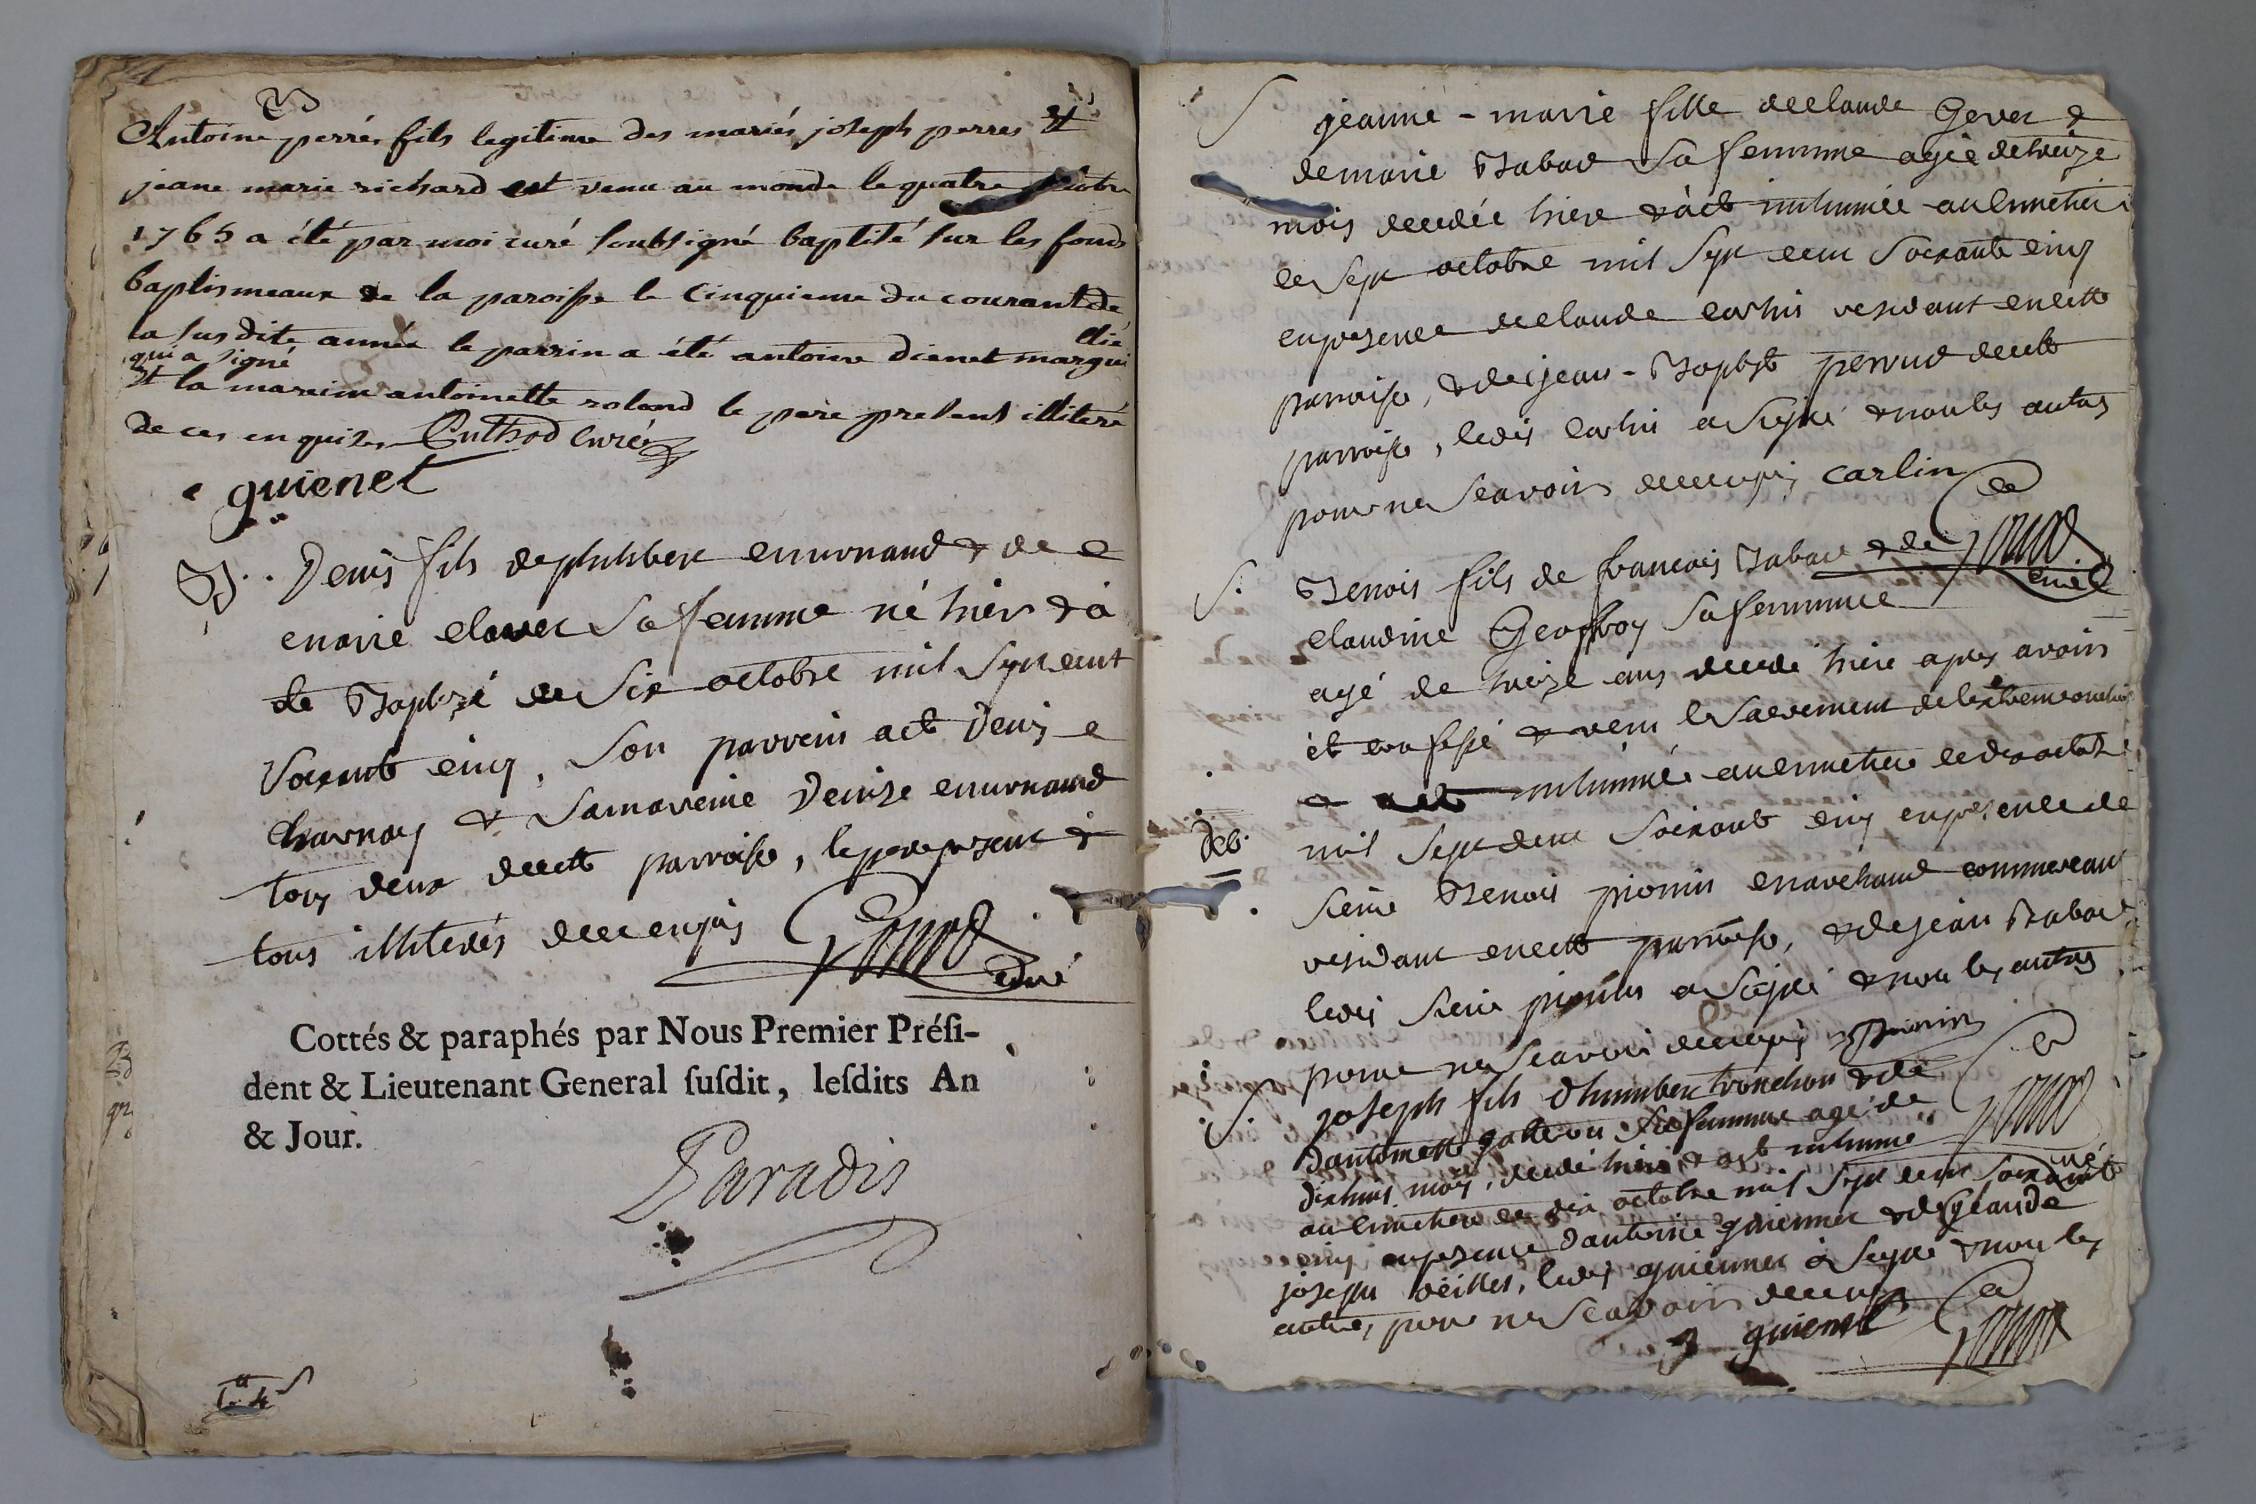 B
Antoine perrés fils legitime des mariés joseph perres et
jeane marie richard est venu au monde le quatre octobre
1765 a été par moi curé soubsigné baptisé sur les fonds
baptismeaux de la paroisse le cinquieme du courant de
la susdite année le parrin a été antoine
qui a signé
et la mareine antoinette roland le pere present illiteré
de ces enquis curé
guienet
B. Denis fils de philibert & de
marie sa femme né hier & a
été Baptizé le six octobre mil sept cent
soixante cinq, son parrein est Denis
charnay & sa mareine Denize
tous deux de cette parroisse, le pere present &
tous illiterés de ce enquis
curé
Cottés & paraphés par Nous Premier Prési-
dent & Lieutenant General susdit, lesdits An
& Jour.
Paradis
S jeanne-marie fille de claude &
de marie Babad sa femme agée de treize
mois decedée hier & a été inhumée au cimetiere
le sept octobre mil sept cent soixante cinq
en presence de claude carlin residant en cette
parroisse, & de jean-Baptiste perrud de cette
parroisse, ledit carlin a signé & non les autres
pour ne scavoir de ce enquis carlin
S. Benois fils de francois Babad & de
curé
claudine Geoffroy sa femme
agé de treize ans decedé hier apres avoir
été confessé & receu le sacrement de l'extremeonction
& a été inhumé au cimetiere le dix octobre
mil sept cent soixante cinq en presence de
sieur Benois pionin marchand commercant
residant en cette parroisse, & de jean Babad
ledit sieur pionin a signé & non les autres
pour ne scavoir de ce enquis pionin
S. joseph fils d'humbert tronchon & de
d'antoinette sa femme agé de
dixhuit mois, decedé hier & a été inhumé
au cimetiere le dix octobre mil sept cent soixante
curé
cinq en presence d'antoine guiennet & de
joseph ledit guiennet a signé & non les
autres pour ne scavoir de ce enquis
guienet